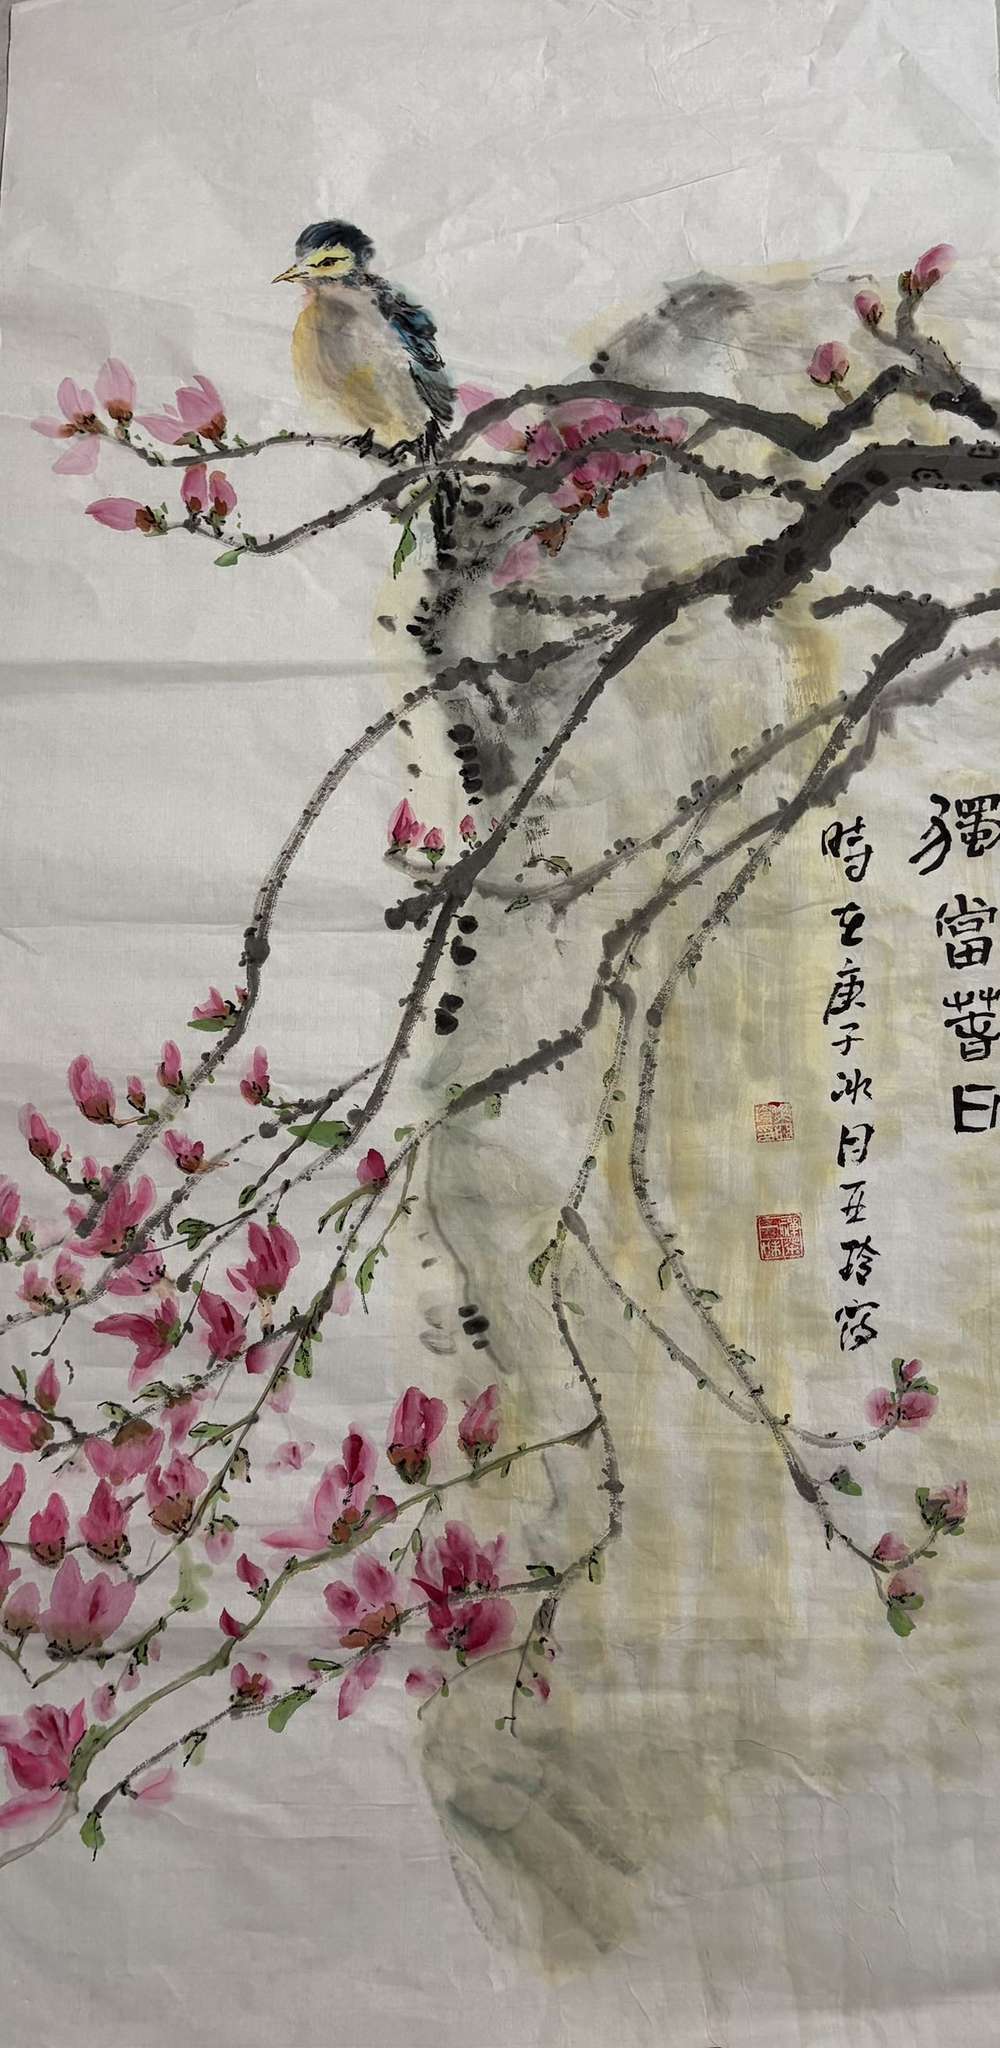 獨當春日
時在庚子冰月亚玲寫